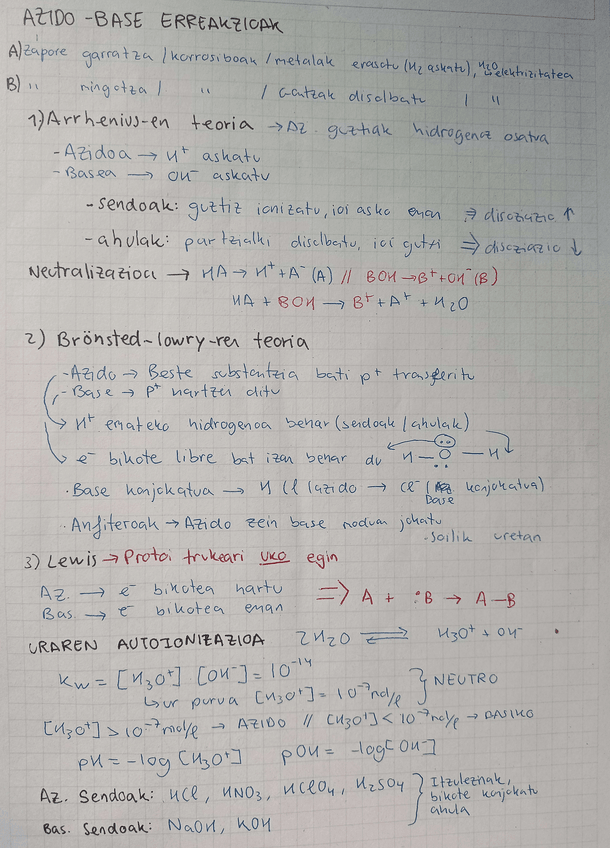 AZIDO-BASE ERREAKZIOAK
A) Zapore garratza / korrosiboak / metalak erasotu (H2 askatu), H2O elektrizitatea
B) " mingotza / " / gantzak disolbatu / "
1) Arrhenius-en teoria → Az. guztiak hidrogenoz osatua
- Azidoa → H+ askatu
- Basea → OH- askatu
- sendoak: guztiz ionizatu, ioi asko eman ⇒ disoziazio ↑
- ahulak: partzialki disolbatu, ioi gutxi ⇒ disoziazio ↓
Neutralizazioa → HA → H+ + A- (A) // BOH → B+ + OH- (B)
HA + BOH → B+ + A+ + H2O
2) Brönsted-lowry-ren teoria
- Azido → Beste substantzia bati p+ transferitu
- Base → p+ hartzen ditu
→ H+ emateko hidrogenoa behar (sendoak / ahulak)
→ e- bikote libre bat izan behar du H - O - H
· Base konjokatua → HCl (azido → Cl- (Base konjokatua)
· Anfiteroak → Azido zein base moduan jokatu
- Soilik uretan
3) Lewis → Protoi trukeari uko egin
Az. → e- bikotea hartu
Bas → e- bikotea eman
⇒ A + :B → A-B
URAREN AUTOIONIZAZIOA 2H2O ⇌ H3O+ + OH-
Kw = [H3O+] [OH-] = 10-14
↳ ur purua [H3O+] = 10-7 mol/l } NEUTRO
[H3O+] > 10-7 mol/l → AZIDO // [H3O+] < 10-7 mol/l → BASIKO
pH = -log [H3O+] pOH = -log [OH-]
Az. Sendoak: HCl, HNO3, HClO4, H2SO4
Bas. Sendoak: NaOH, KOH
} Itzulezinak, bikote konjokatu ahula